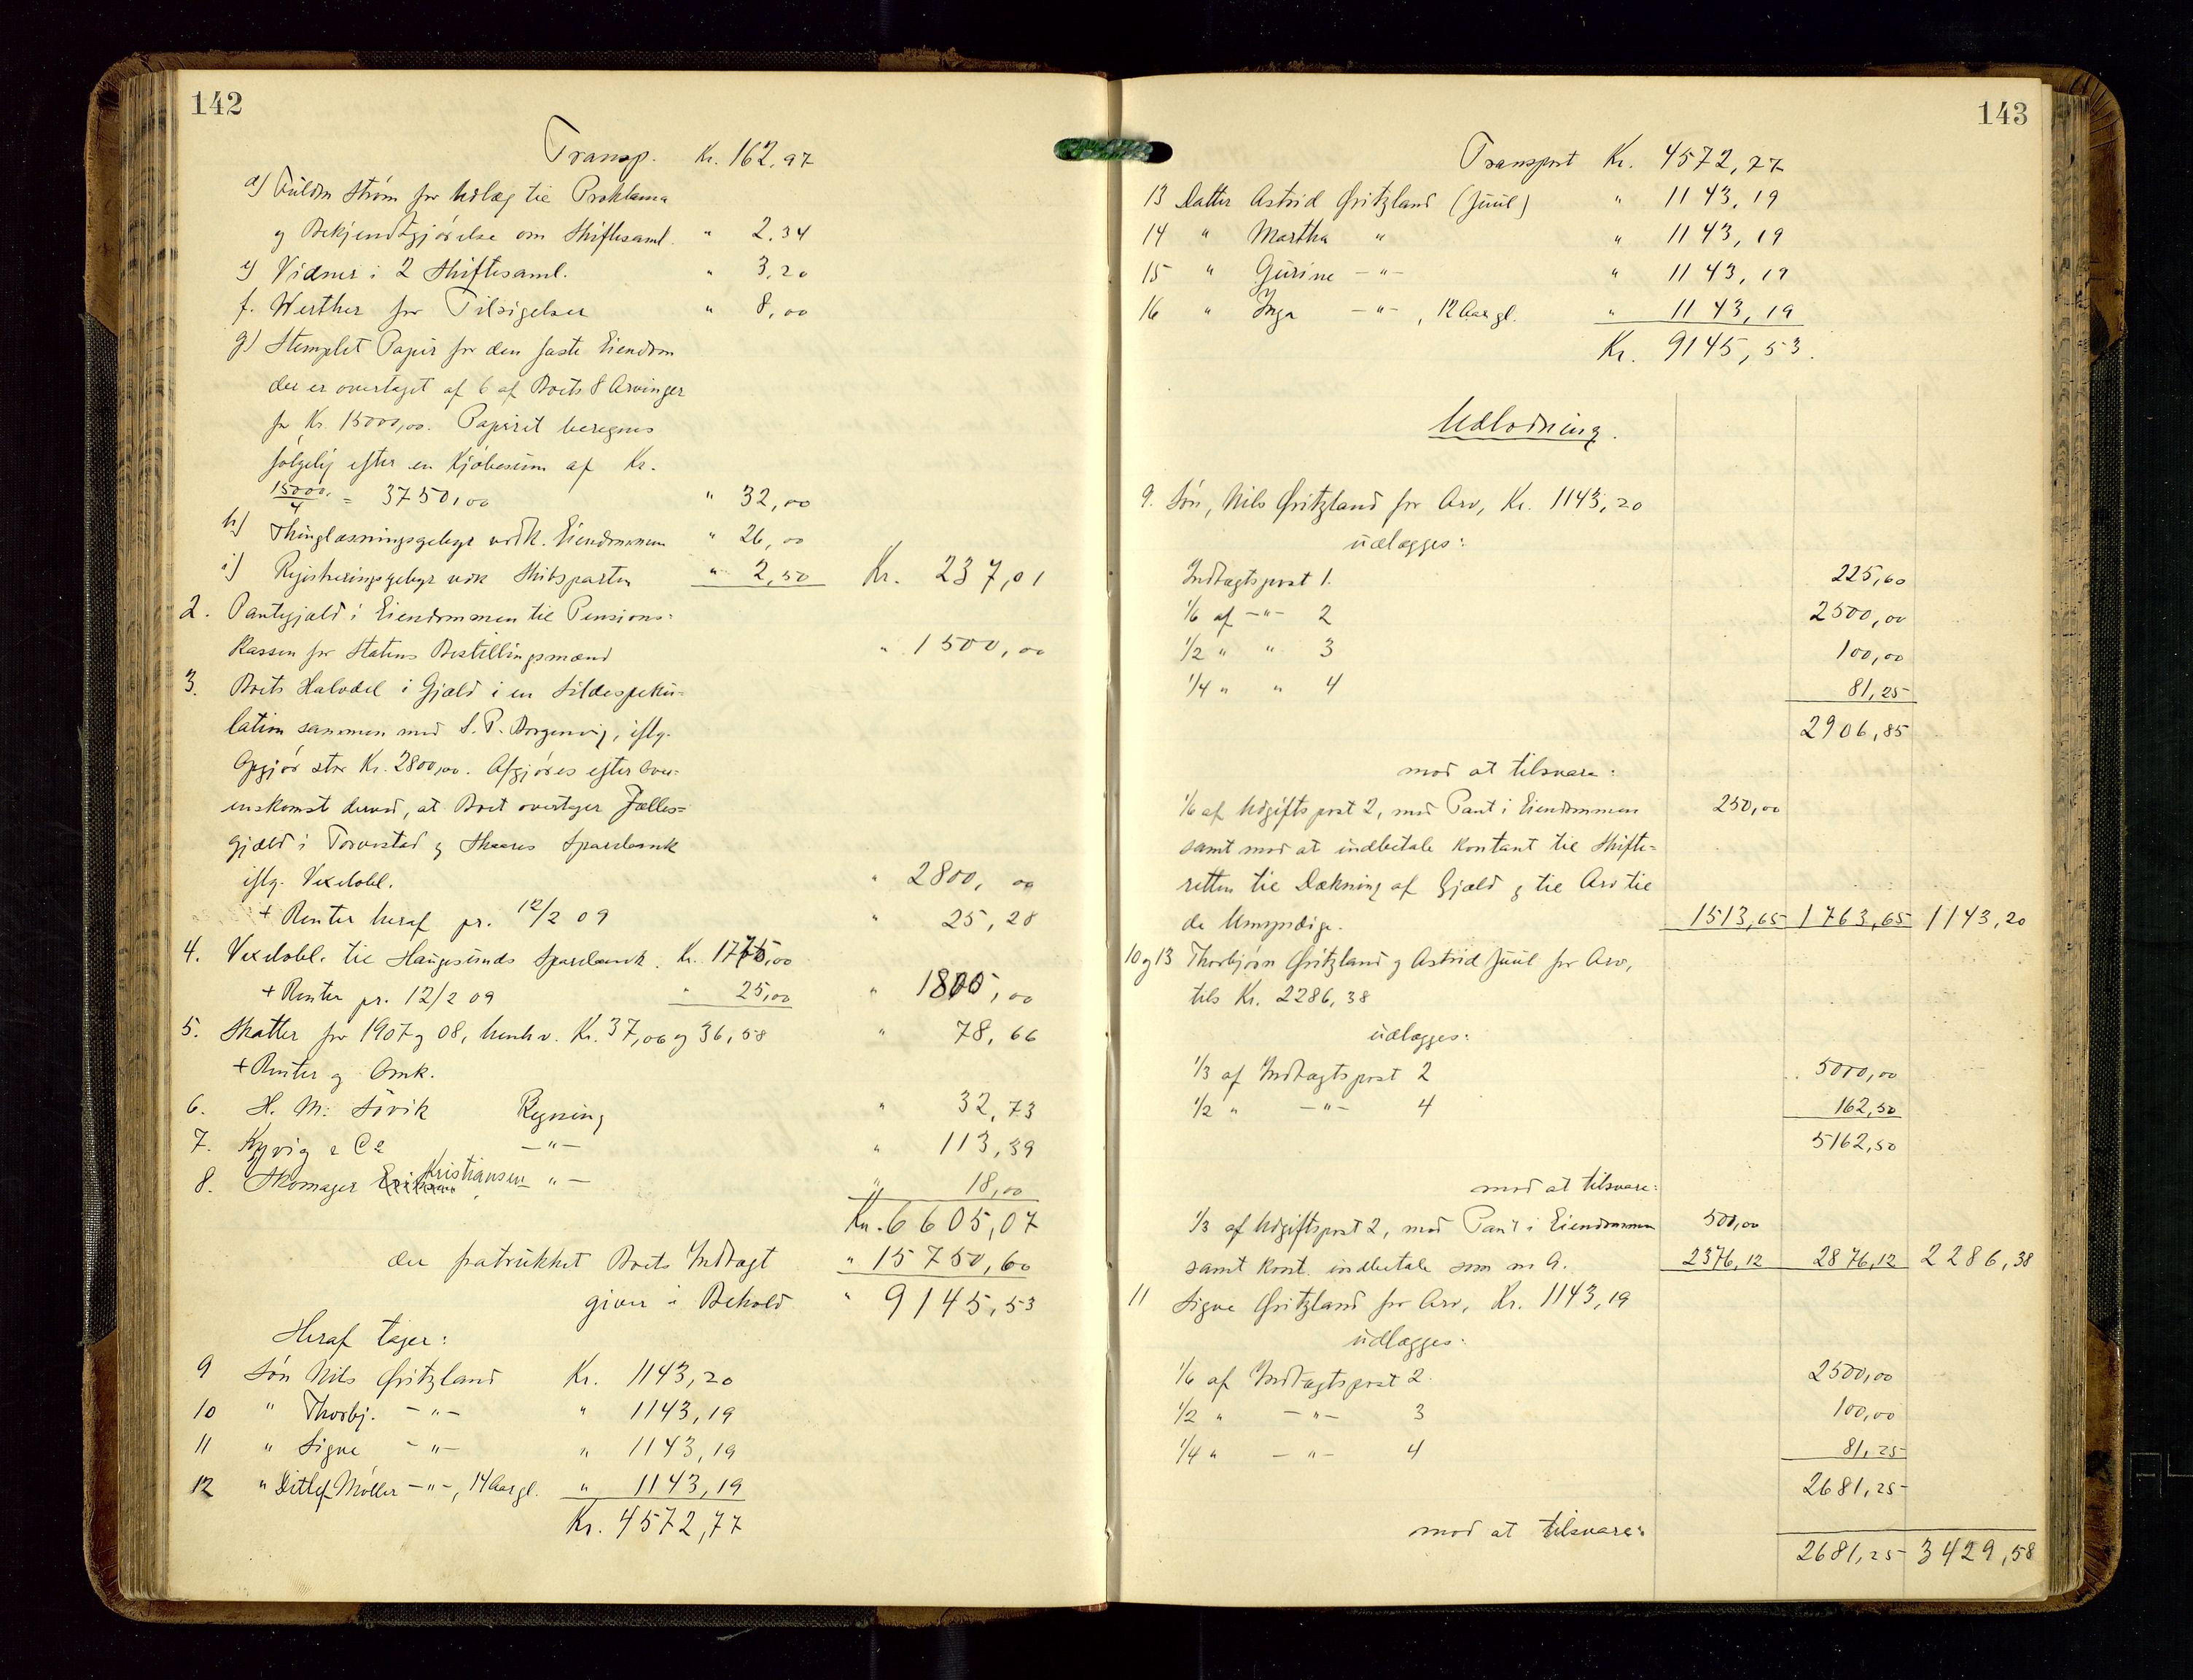 142
Transp. Kr. 162,97
d) Fuldm Strøm for Udlæg til Proklama
og Bekjendtgjørelse om Skiftesaml. " 2.34
e) Vidner i 2 Skiftesaml. " 3,20
f. Werther for Tilsigelser " 8,00
g) Stemplet Papir for den faste Eiendom
der er overtaget af 6 af Boets 8 Arvinger
for Kr. 15000,00. Papiret beregnes
følgelig efter en Kjøbesum af Kr.
15000/4 = 3750,00 " 32,00
h) Thinglæsningsgebyr vedk. Eiendommen " 26,00
i) Registreringsgebyr vdk Skibsparten " 2,50 Kr. 237,01
2. Pantegjæld i Eiendommen til Pensions-
kassen for Statens Bestillingsmænd " 1500,00
3. Boets Halvdel i Gjæld i en Sildespeku-
lation sammen med S. P. Borgenvig, iflg.
Opgjør stor Kr. 2800,00. Afgjøres efter Over-
enskomst derved, at Boet overtager Fælles-
gjæld i Torvestad og Skaares Sparebank
iflg. Vexelobl. " 2800,00
+ Renter heraf pr. 12/2 09 " 25,28
4. Vexelobl. til Haugesunds Sparebank. Kr. 1775,00
+ Renter pr. 12/2 09 " 25,00 " 1800,00
5. Skatter for 1907 og 08, henhv. Kr. 37,06 og 36,58 " 78,66
+ Renter og Omk.
6. H. M. Søvik Regning " 32,73
7. Kyvig & Co —"— " 113,39
8. Skomager Kristiansen "— " 18,00
Kr. 6605,07
der fratrukket Boets Indtægt " 15750,60
giver i Behold " 9145,53
Heraf tager:
9 Søn Nils Gritzland Kr. 1143,20
10 " Thorbj. —"— " 1143,19
11 " Signe —"— " 1143,19
12 " Ditlef Møller —"—, 14 Aar gl. " 1143,19
Kr. 4572,77
143
Transport Kr. 4572,77
13 Datter Astrid Gritzland (Juul) " 1143,19
14 " Martha " " 1143,19
15 " Gurine —"— " 1143,19
16 " Inga —"—, 12 Aar gl. " 1143,19
Kr. 9145,53.
Udlodning.
9. Søn, Nils Gritzland for Arv, Kr. 1143,20
udlægges:
Indtægtspost 1. 225,60
1/6 af —"— 2 2500,00
1/2 " " 3 100,00
1/4 " " 4 81,25
2906,85
mod at tilsvare:
1/6 af Udgiftspost 2, mod Pant i Eiendommen 250,00
samt mod at indbetale kontant til Skifte-
retten til Dækning af Gjæld og til Arv til
de Umyndige. 1513,65 1763,65 1143,20
10 og 13 Thorbjørn Gritzland og Astrid Juul for Arv,
tils Kr. 2286,38
udlægges:
1/3 af Indtægtspost 2 5000,00
1/2 " —"— 4 162,50
5162,50
mod at tilsvare:
1/3 af Udgiftspost 2, mod Pant i Eiendommen 500,00
samt kont. indbetale som nr 9. 2376,12 2876,12 2286,38
11 Signe Gritzland for Arv, Kr. 1143,19
udlægges:
1/6 af Indtægtspost 2. 2500,00
1/2 " —"— 3 100,00
1/4 " —"— 4 81,25
2681,25
mod at tilsvare:
2681,25 3429,58